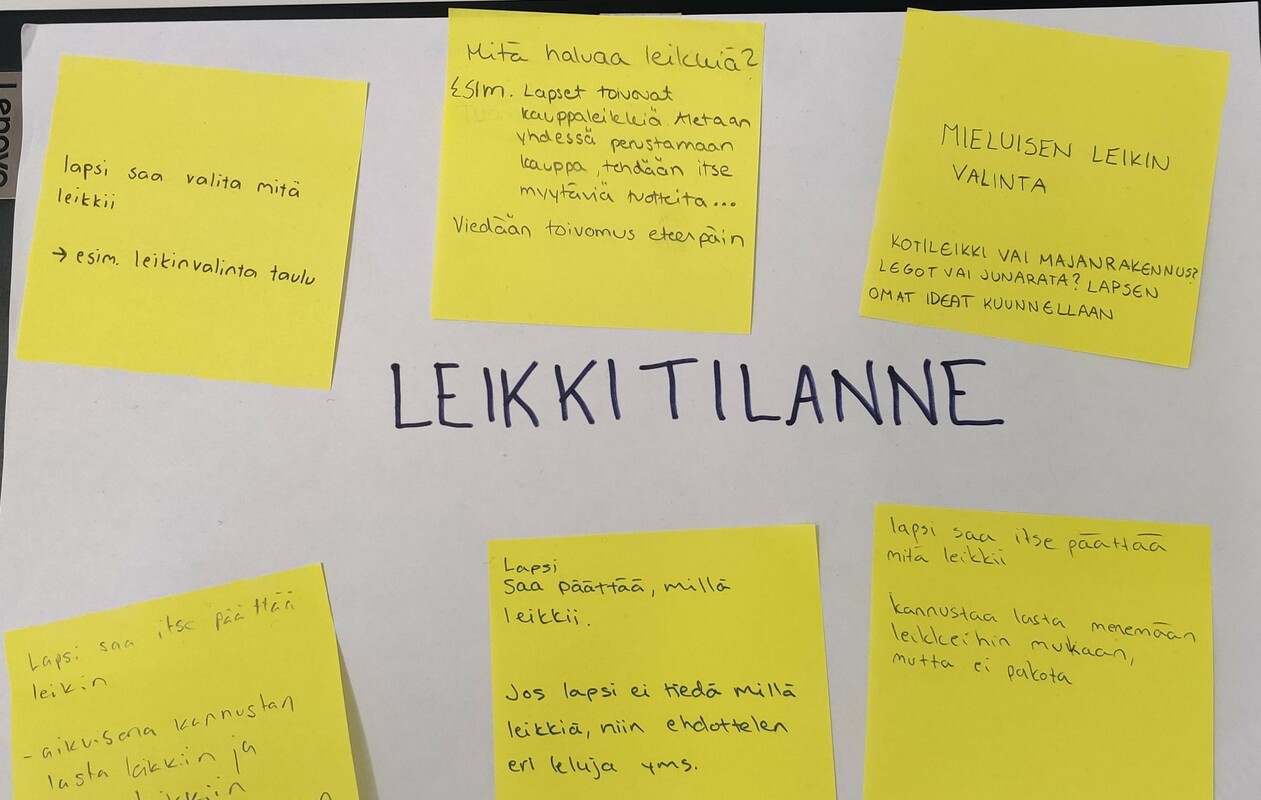 Lenovo
lapsi saa valita mitä
leikkii
→ esim. leikinvalinta taulu
Mitä haluaa leikkiä?
ESIM. Lapset toivovat
kauppaleikkiä
yhdessä perustamaan
kauppa, tehdään itse
myytäviä tuotteita...
Viedään toivomus eteenpäin
MIELUISEN LEIKIN
VALINTA
KOTILEIKKI VAI MAJANRAKENNUS?
LEGOT VAI JUNARATA? LAPSEN
OMAT IDEAT KUUNNELLAAN
LEIKKITILANNE
Lapsi saa itse päättää
leikin
- aikuisena kannustan
lasta leikkiin ja
leikkiin
Lapsi
Saa päättää, millä
leikkii.
Jos lapsi ei tiedä millä
leikkiä, niin ehdottelen
eri leluja yms.
lapsi saa itse päättää
mitä leikkii
kannustaa lasta menemään
leikkeihin mukaan,
mutta ei pakota